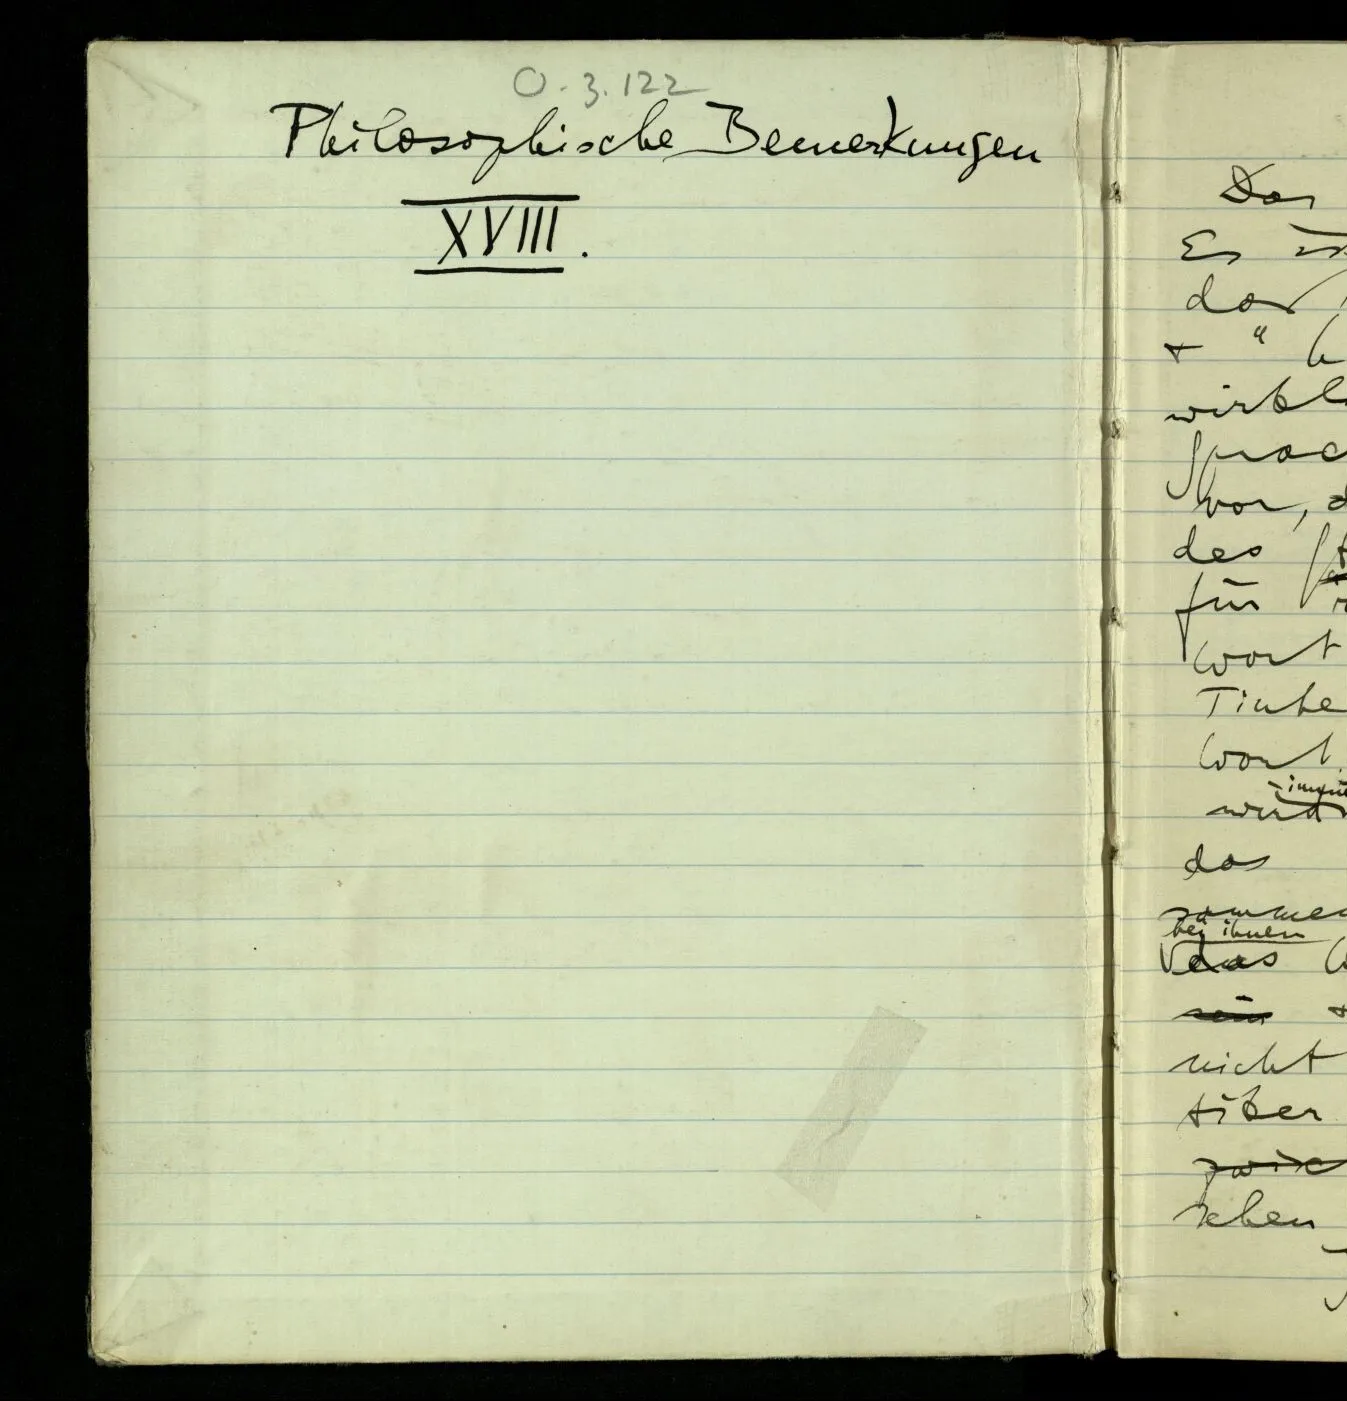 O.3.122
Philosophische Bemerkungen
XVIII.
Das
Es
das
+ "
wirkl
Sprac
vor, d
des
für
Wort
Tinte
Wort.
wird
das
sammen
bei ihnen
das
sein +
nicht
über
zwisc
sehen